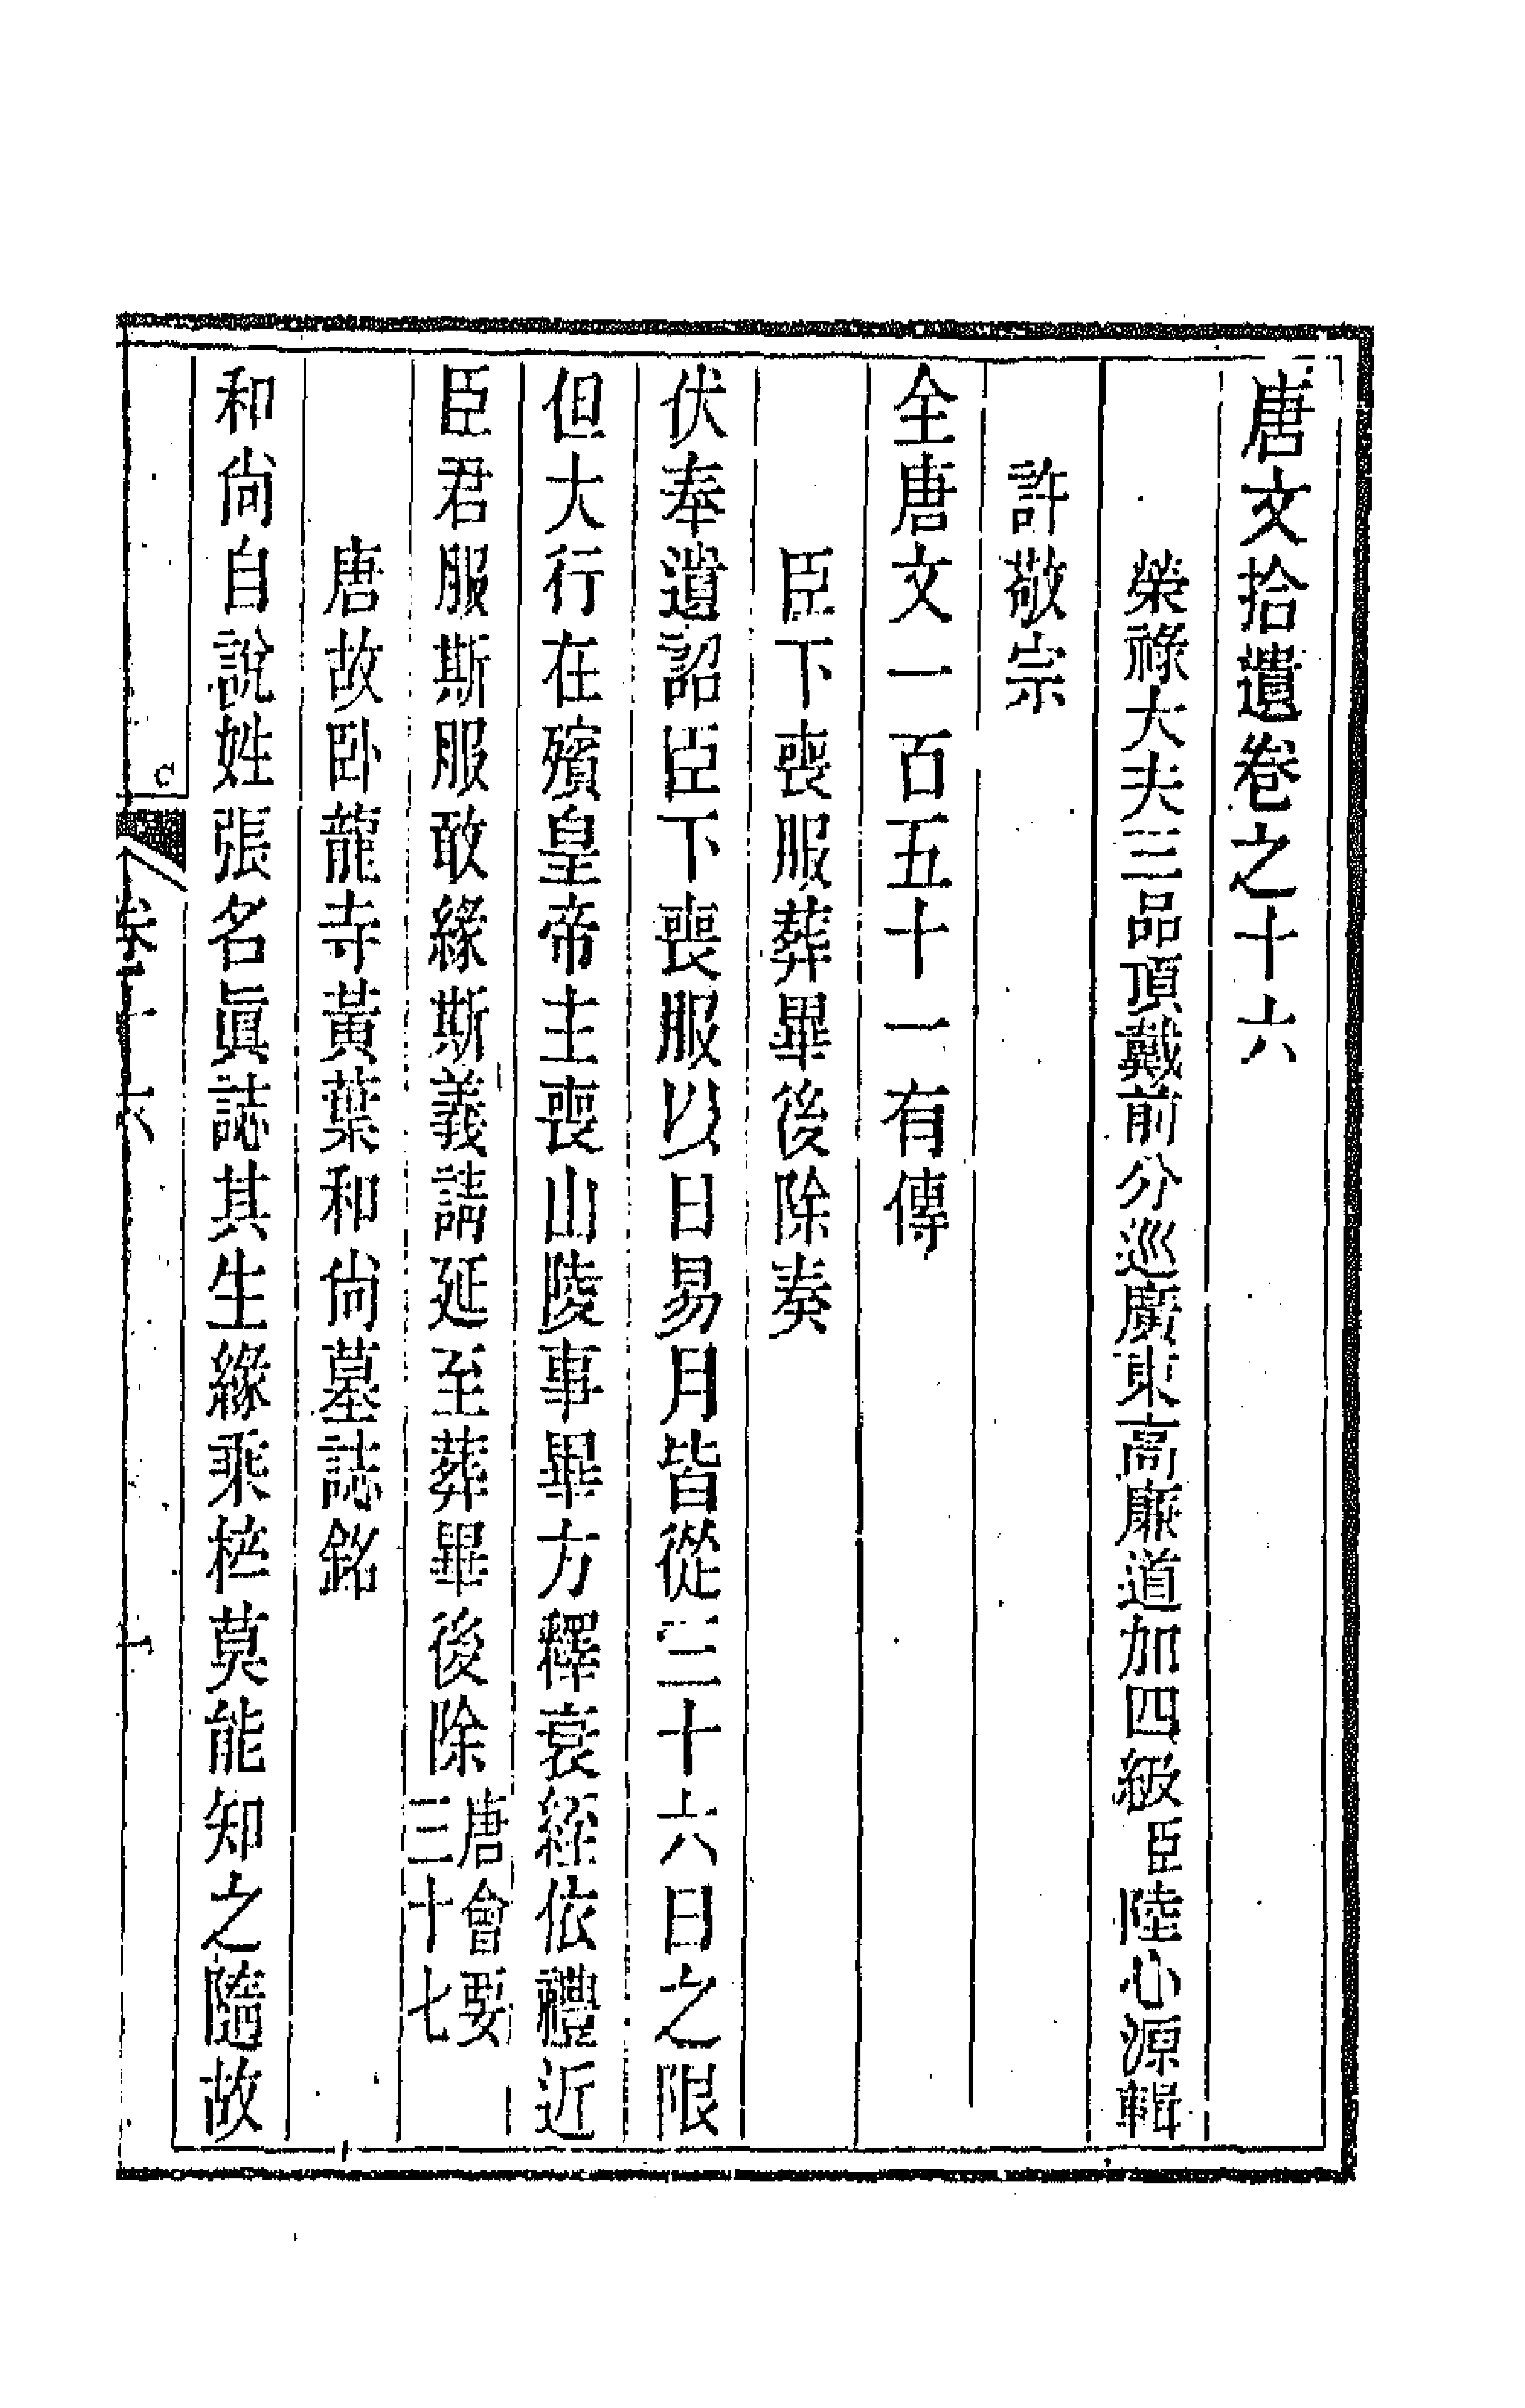 唐文拾遺卷之十六
榮祿大夫三品頂戴前分巡廣東高廉道加四級臣陸心源輯
許敬宗
全唐文一百五十一有傳
臣下喪服葬畢後除奏
伏奉遺詔臣下喪服以日易月皆從三十六日之限
但大行在殯皇帝主喪山陵事畢方釋衰絰依禮近
臣君服斯服敢緣斯義請延至葬畢後除唐會要三十七
唐故卧龍寺黃葉和尙墓誌銘
和尙自說姓張名眞誌其生緣乘桮莫能知之隨故
卷十六 一